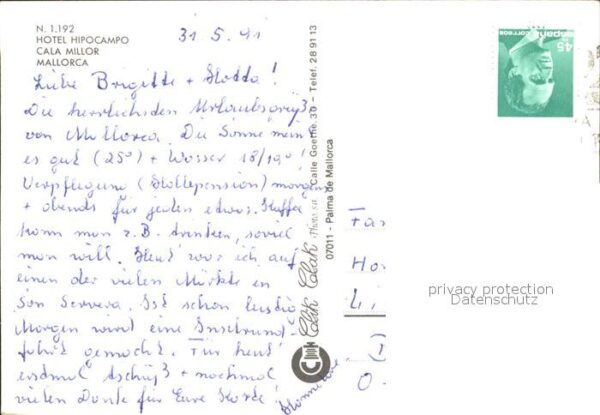 N. 1.192
HOTEL HIPOCAMPO
CALA MILLOR
MALLORCA
31.5.91
Liebe Brigitte + Lotta!
Die herzlichsten Urlaubsgrüß
von Mallorca. Die Sonne mein
es gut (25°) + Wasser 18/19°!
Verpflegung (Hallepension) morgens
+ abends für jeden etwas. Kaffee
kann man z.B. trinken, soviel
man will. Heut war ich auf
einen der vielen Märkte in
Son Servera. Ist schon lustig
Morgen wird eine Inselrund-
fahrt gemacht. Für heut
erstmal tschüß + nochmal
vielen Dank für Eure Karte!
Clik Clak Photo s.a. Calle Goethe 30 - Telef. 28 91 13
07011 - Palma de Mallorca
45
españa
correos
Fam
Ho
privacy protection
Datenschutz